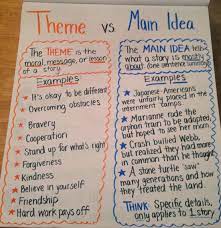 Theme vs Main Idea
The THEME is the
moral, message, or lesson
of a story.
Examples
It's okay to be different
Overcoming obstacles
Bravery
Cooperation
Stand up for what's right
Forgiveness
Kindness
Believe in yourself
Friendship
Hard work pays off
The MAIN IDEA tells
what a story is mostly
about (one sentence summary)
Examples
Japanese-Americans
were unfairly placed in the
internment camps
Marianne rode the
orphan train to be adopted,
but hoped to see her mom
Crash bullied Webb,
but realized they had more
in common than he thought
A stone turtle "saw"
many generations and how
they treated the land.
THINK Specific details,
only applies to 1 story